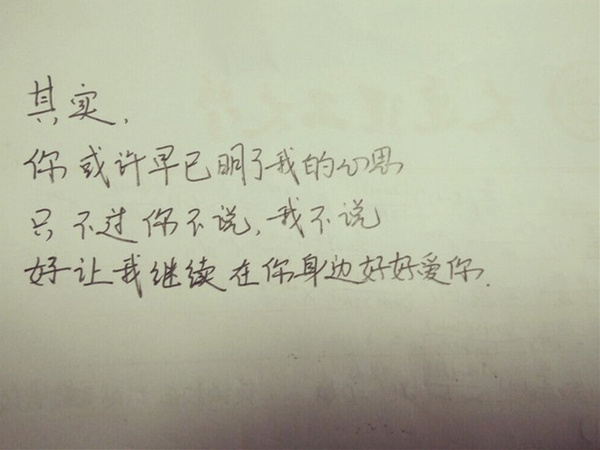 其实,
你或许早已明了我的心思
只不过你不说,我不说
好让我继续在你身边好好爱你.